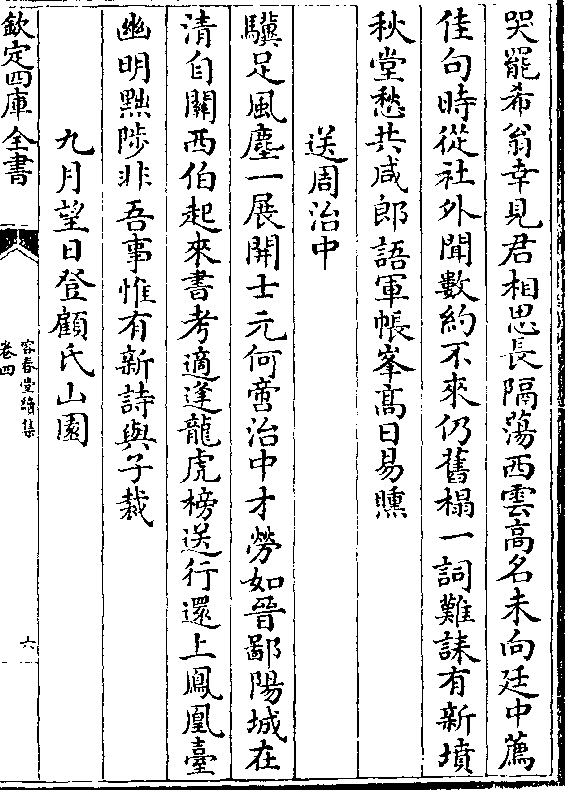 哭罷希翁幸見君相思長隔蕩西雲高名未向廷中薦
佳句時從社外聞數約不來仍舊榻一詞難誄有新墳
秋堂愁共咸郎語軍帳峯高日易曛
送周治中
驥足風塵一展開士元何啻治中才勞如晉鄙陽城在
清自關西伯起來書考適逢龍虎榜送行還上鳳凰臺
幽明黜陟非吾事惟有新詩與子裁
九月望日登顧氏山園
欽定四庫全書
容春堂續集
卷四
六